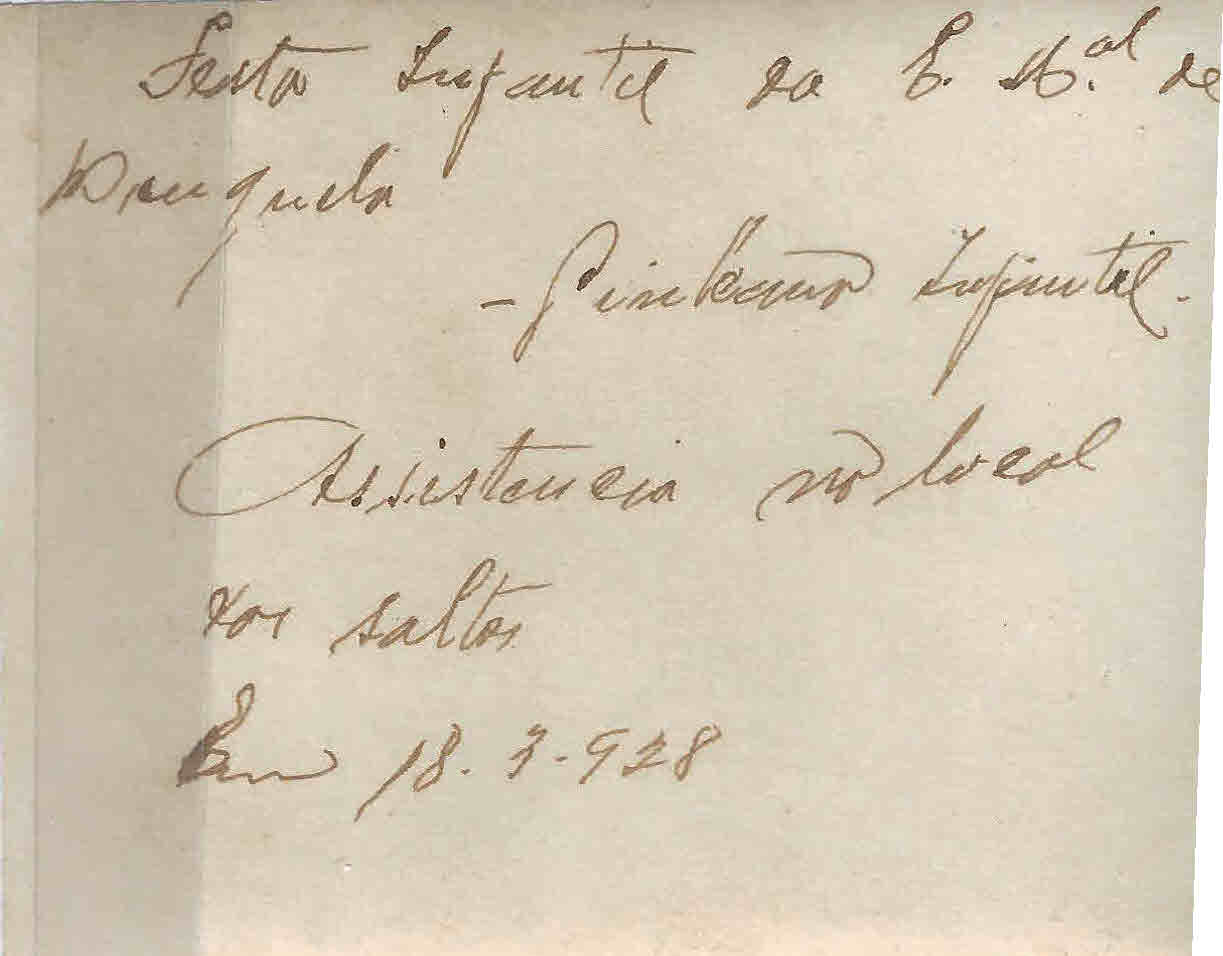 Festa Infantil da E. M.al de
Benguela
- Ginkana Infantil.
Assistencia no local
dos saltos
Em 18-3-928